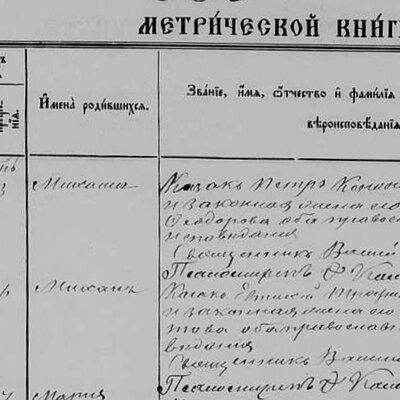 МЕТРИ́ЧЕСКОЙ КНИ́Г
И҆мена̀ роди́вшихся.
Зва́нїе, и҆́мя, ѻ҆́тчество и҆ фами́лїя
вѣроисповѣ́данїя
Михаилъ
Казакъ Петръ
и законная жена его
Ѳеодорова оба правосл
исповѣданія
Священникъ Васил
Псаломщикъ
Михаилъ
Казакъ Евтихій Троф
и законная жена его
това оба православ
вѣданія
Священникъ Васил
Псаломщикъ
Марія